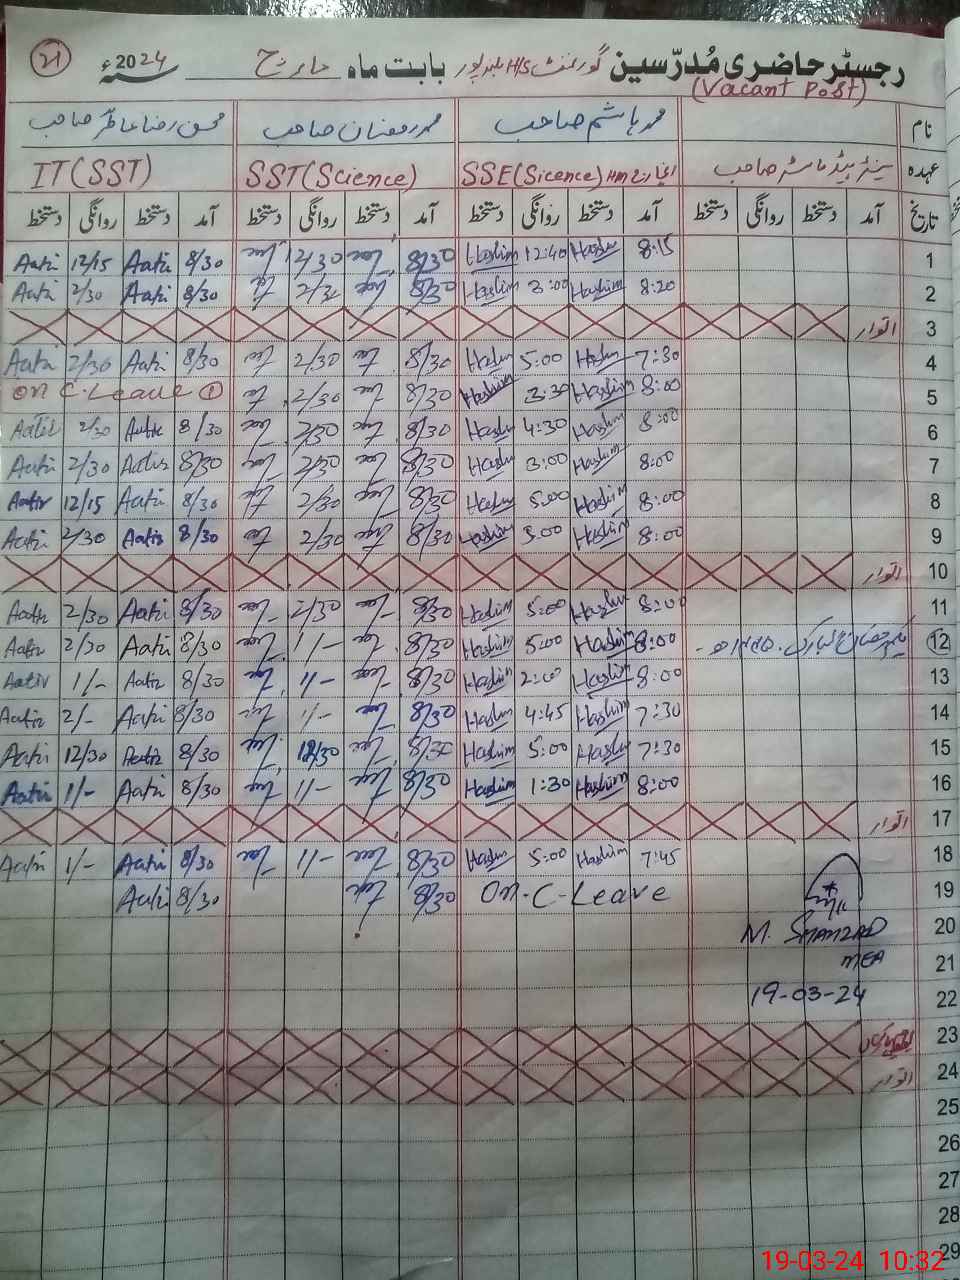 رجسٹر حاضری مُدرّسین گورنمنٹ H/S بابت ماہ مارچ سنہ 2024ء
21
(Vacant Post)
نام محمد ہاشم صاحب محمد رمضان صاحب محسن رضا صاحب
عہدہ سینئر ہیڈ ماسٹر صاحب SSE(Sicence) HM انچارج SST(Science) IT(SST)
تاریخ آمد دستخط روانگی دستخط آمد دستخط روانگی دستخط آمد دستخط روانگی دستخط آمد دستخط روانگی دستخط
1 8:15 Hashim 12:40 Hashim 8/30 12/30 8/30 Aatir 12/15 Aatir
2 8:20 Hashim 3:00 Hashim 8/30 2/30 8/30 Aatir 2/30 Aatir
3 اتوار
4 7:30 Hashim 5:00 Hashim 8/30 2/30 8/30 Aatir 2/30 Aatir
5 8:00 Hashim 3:30 Hashim 8/30 2/30 On C-Leave 1
6 8:00 Hashim 4:30 Hashim 8/30 2/30 8/30 Aatir 2/30 Aatir
7 8:00 Hashim 3:00 Hashim 8/30 2/30 8/30 Aatir 2/30 Aatir
8 8:00 Hashim 5:00 Hashim 8/30 2/30 8/30 Aatir 12/15 Aatir
9 8:00 Hashim 5:00 Hashim 8/30 2/30 8/30 Aatir 2/30 Aatir
10 اتوار
11 8:00 Hashim 5:00 Hashim 8/30 2/30 8/30 Aatir 2/30 Aatir
12 یکم رمضان المبارک 1445ھ 8:00 Hashim 5:00 Hashim 8/30 1/- 8/30 Aatir 2/30 Aatir
13 8:00 Hashim 2:00 Hashim 8/30 1/- 8/30 Aatir 1/- Aatir
14 7:30 Hashim 4:45 Hashim 8/30 1/- 8/30 Aatir 2/- Aatir
15 7:30 Hashim 5:00 Hashim 8/30 12/30 8/30 Aatir 12/30 Aatir
16 8:00 Hashim 1:30 Hashim 8/30 1/- 8/30 Aatir 1/- Aatir
17 اتوار
18 7:45 Hashim 5:00 Hashim 8/30 1/- 8/30 Aatir 1/- Aatir
19 On-C-Leave 8/30 8/30 Aatir
20 M. SHAHZAD
21 MEA
22 19-03-24
23
24 اتوار
25
26
27
28
29
19-03-24 10:32